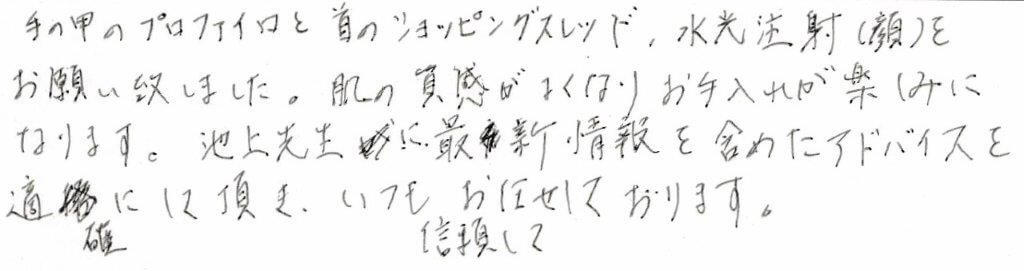 手の甲のプロファイロと首のショッピングスレッド、水光注射(顔)を
お願い致しました。肌の質感がよくなりお手入れが楽しみに
なります。池上先生に最新情報を含めたアドバイスを
適にして頂き、いつもお任せしております。
確 信頼して